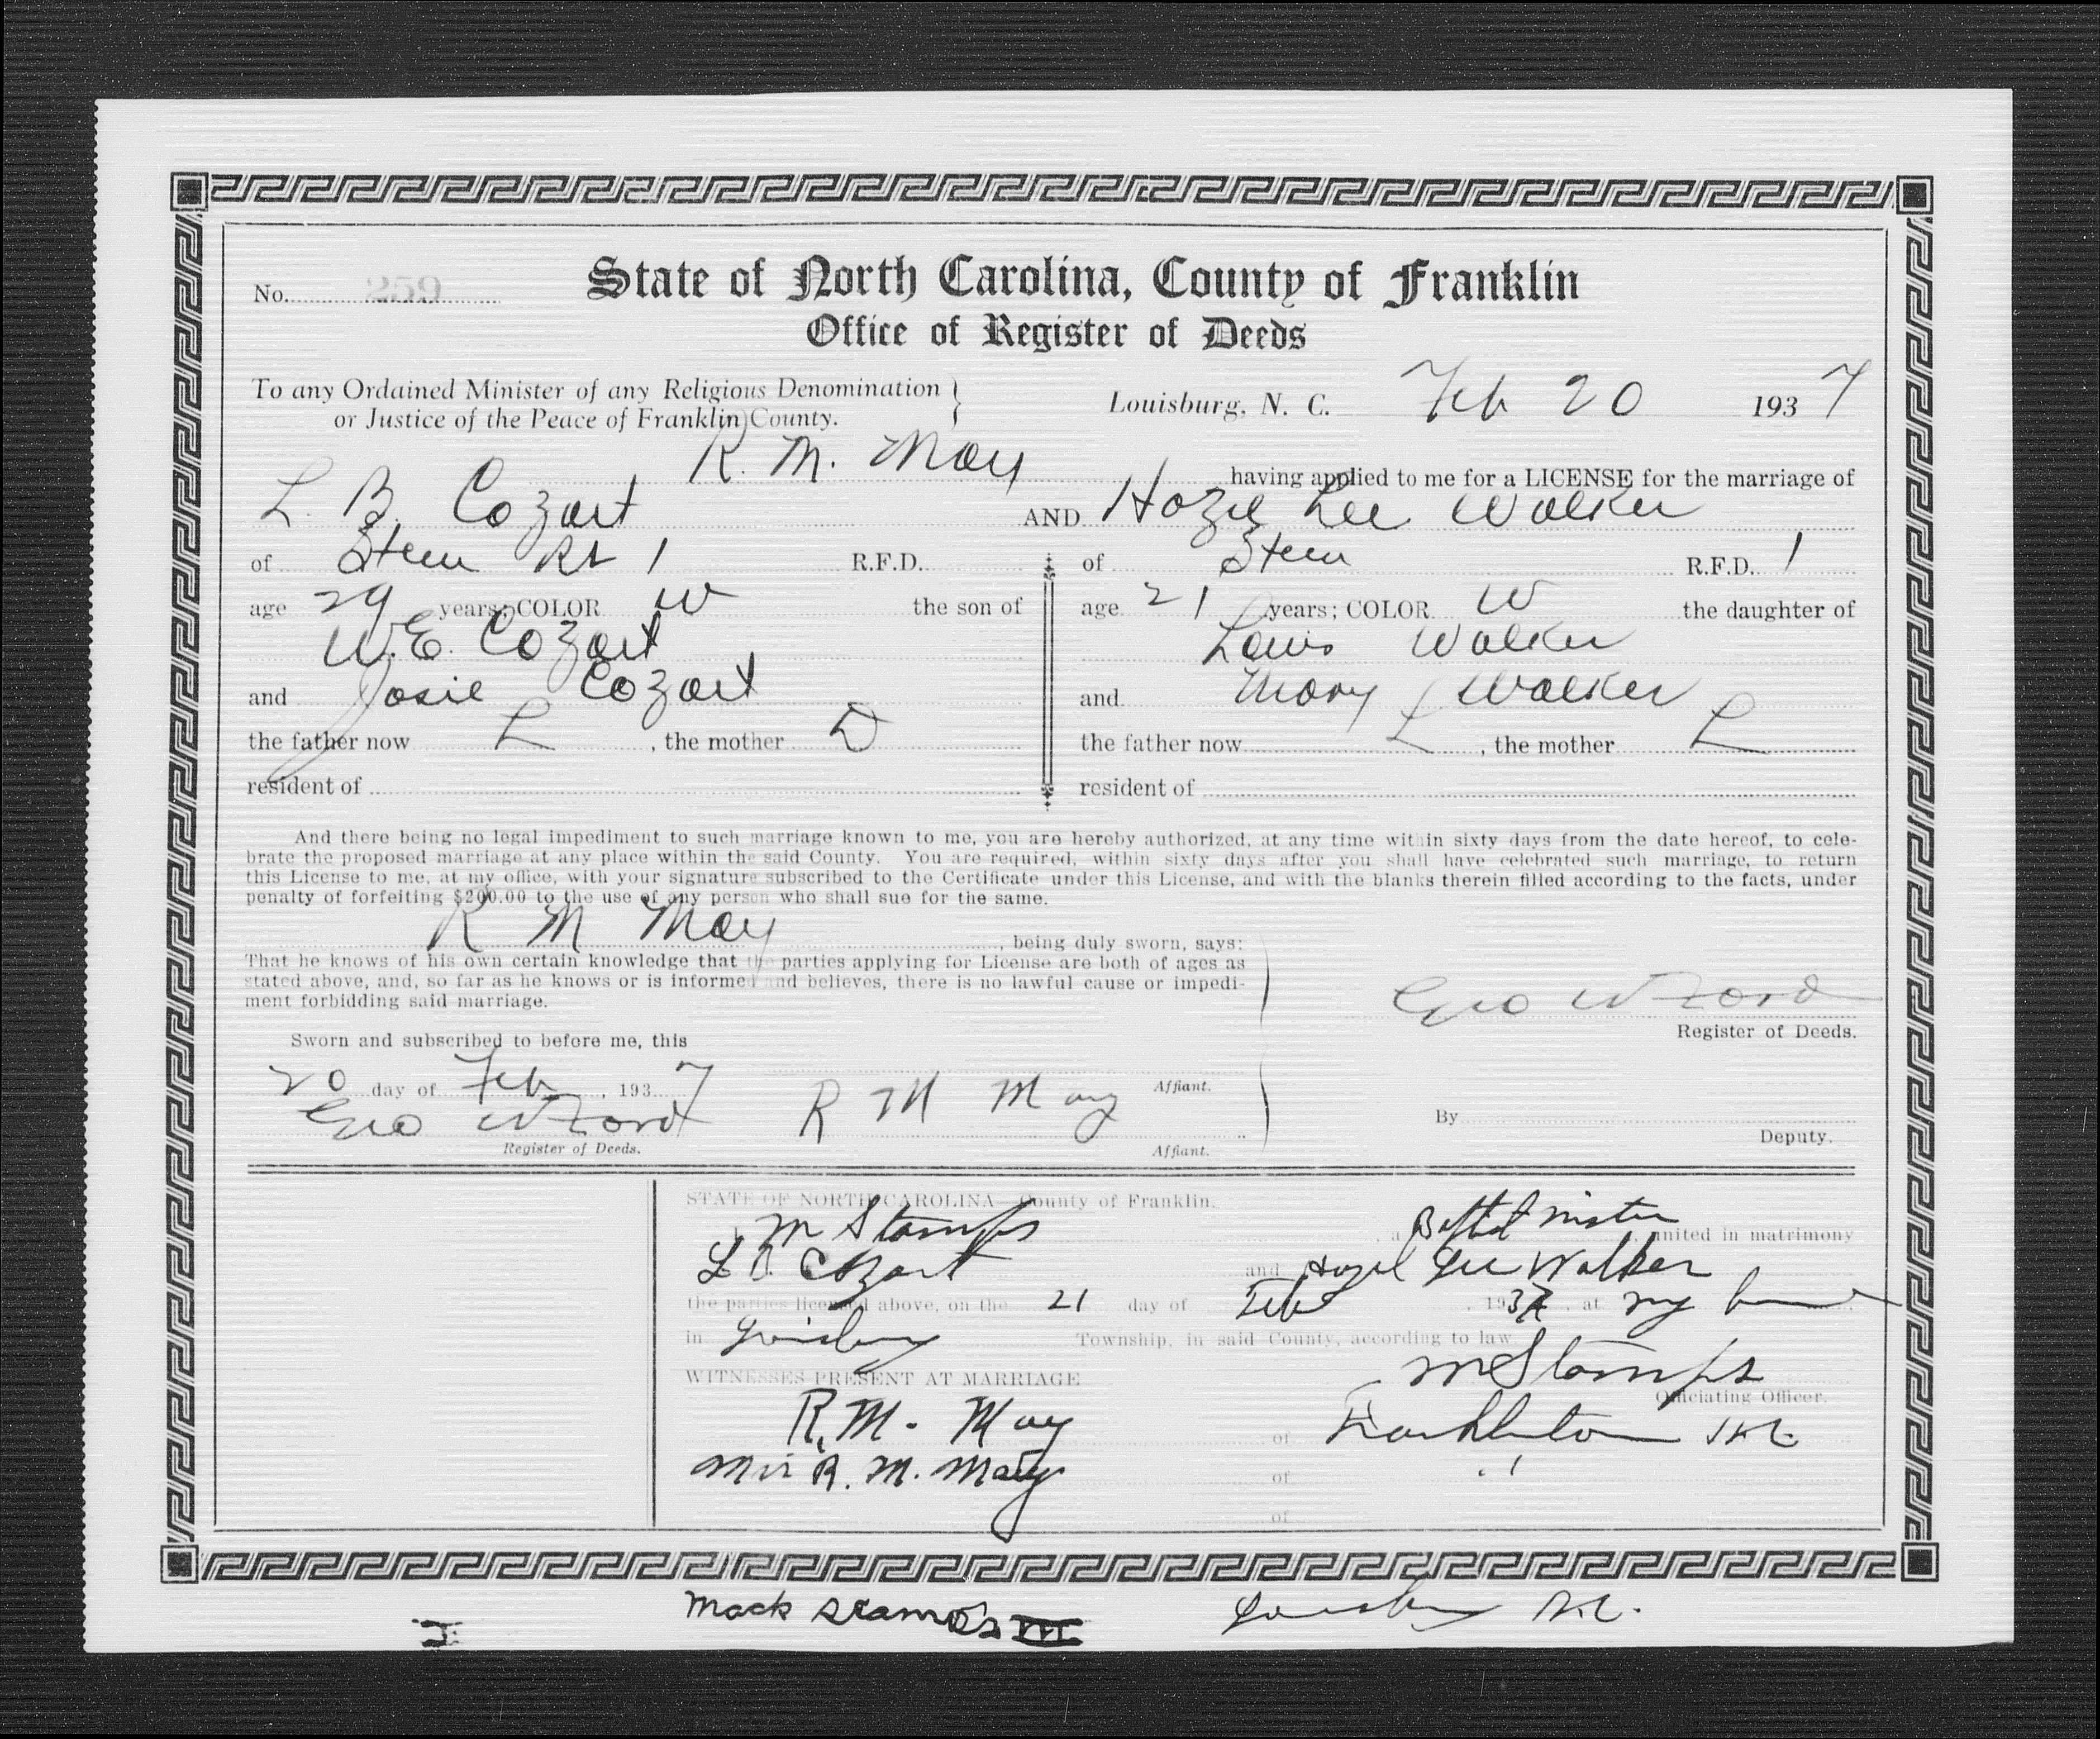 No. 259
State of North Carolina, County of Franklin
Office of Register of Deeds
To any Ordained Minister of any Religious Denomination
or Justice of the Peace of Franklin County.
Louisburg, N. C. Feb 20 1937
R. M. May having applied to me for a LICENSE for the marriage of
L. B. Cozart AND Hozel Lee Walker
of Stem Rt 1 R.F.D. of Stem R.F.D. 1
age 29 years; COLOR W the son of age 21 years; COLOR W the daughter of
W.E. Cozart Lewis Walker
and Josie Cozart and Mary L Walker
the father now L, the mother D the father now L, the mother L
resident of resident of
And there being no legal impediment to such marriage known to me, you are hereby authorized, at any time within sixty days from the date hereof, to cele-
brate the proposed marriage at any place within the said County. You are required, within sixty days after you shall have celebrated such marriage, to return
this License to me, at my office, with your signature subscribed to the Certificate under this License, and with the blanks therein filled according to the facts, under
penalty of forfeiting $200.00 to the use of any person who shall sue for the same.
R M May, being duly sworn, says:
That he knows of his own certain knowledge that the parties applying for License are both of ages as
stated above, and, so far as he knows or is informed and believes, there is no lawful cause or impedi-
ment forbidding said marriage.
Geo W Ford
Register of Deeds.
Sworn and subscribed to before me, this
20 day of Feb, 1937 Affiant.
Geo W Ford R M May
Register of Deeds. Affiant.
By
Deputy.
STATE OF NORTH CAROLINA—County of Franklin.
M Stamps, a Baptist united in matrimony
L B Cozart and Hazel Lee Walker
the parties licensed above, on the 21 day of Feb, 1937, at my
in Louisburg Township, in said County, according to law.
M Stamps
Officiating Officer.
WITNESSES PRESENT AT MARRIAGE
R. M. May of Franklinton N C
Mrs R. M. May of "
of
Mack Stamps Louisburg N.C.